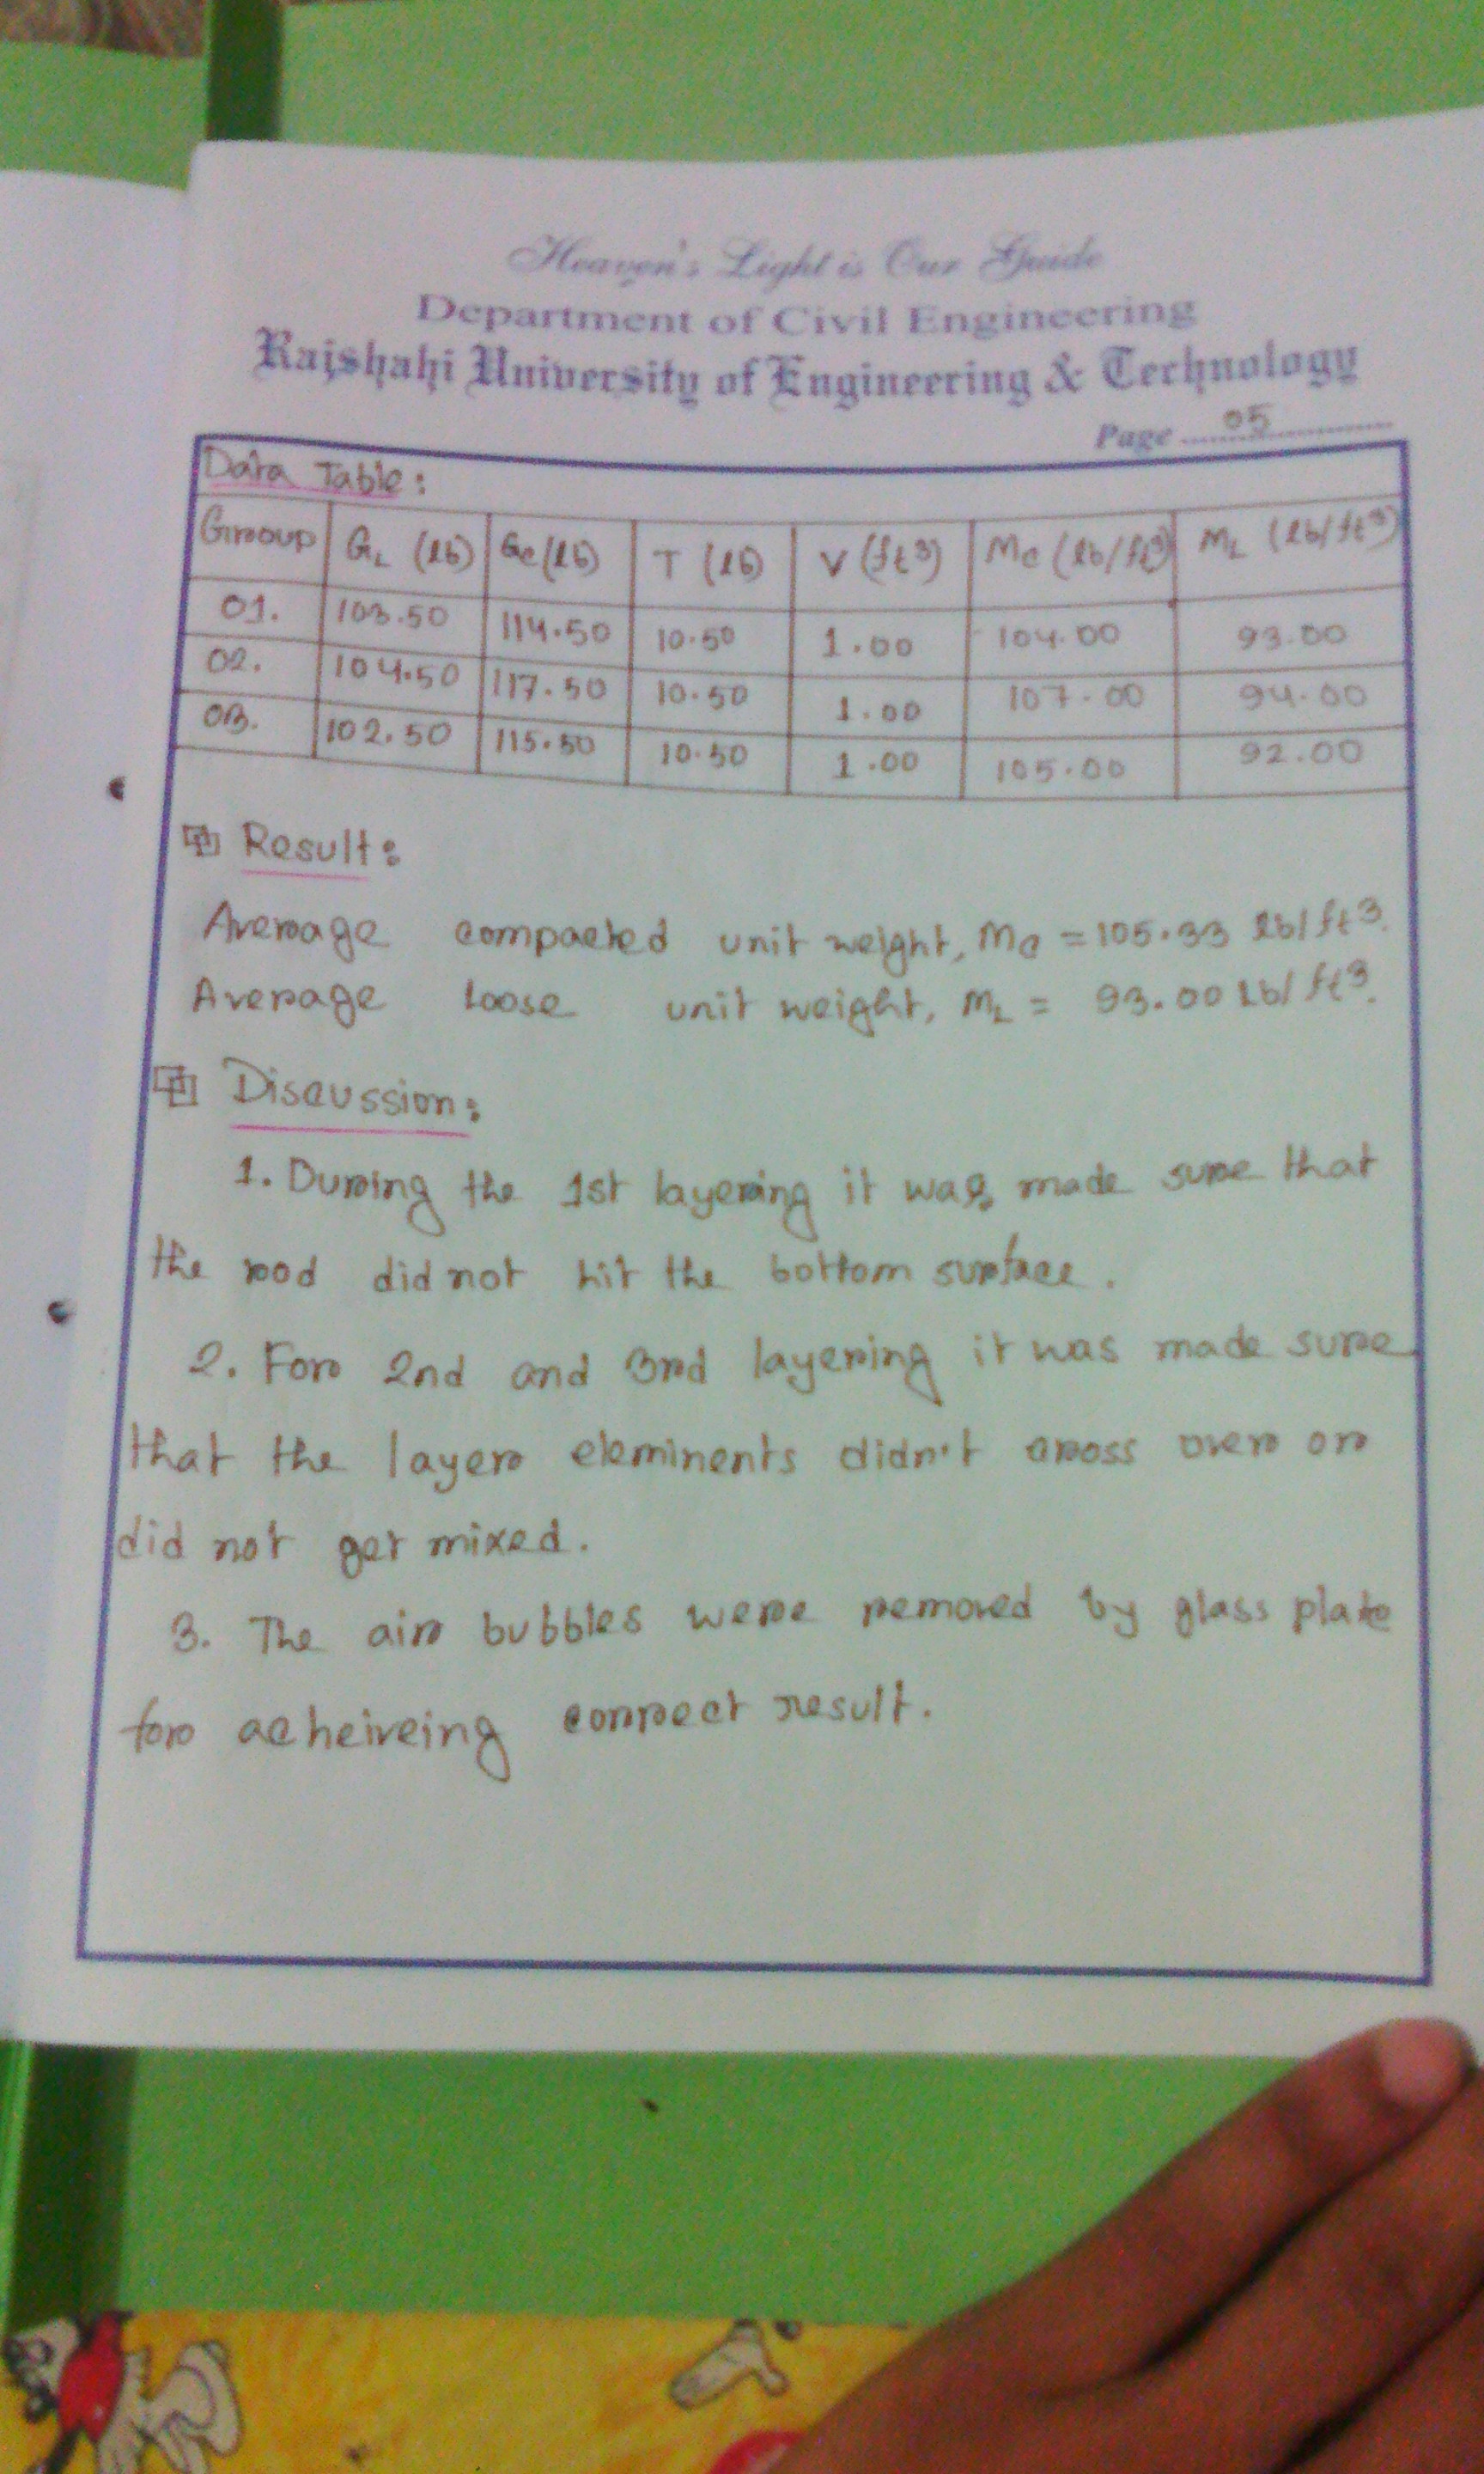 Heaven's Light is Our Guide
Department of Civil Engineering
Rajshahi University of Engineering & Technology
Page 05
Data Table:
Group G_L (lb) G_c (lb) T (lb) V (ft³) M_c (lb/ft³) M_L (lb/ft³)
01. 103.50 114.50 10.50 1.00 104.00 93.00
02. 104.50 117.50 10.50 1.00 107.00 94.00
03. 102.50 115.50 10.50 1.00 105.00 92.00
Result:
Average compacted unit weight, M_c = 105.33 lb/ft³.
Average loose unit weight, M_L = 93.00 lb/ft³.
Discussion:
1. During the 1st layering it was made sure that
the rod did not hit the bottom surface.
2. For 2nd and 3rd layering it was made sure
that the layer eleminents didn't cross over or
did not get mixed.
3. The air bubbles were removed by glass plate
for acheiveing correct result.